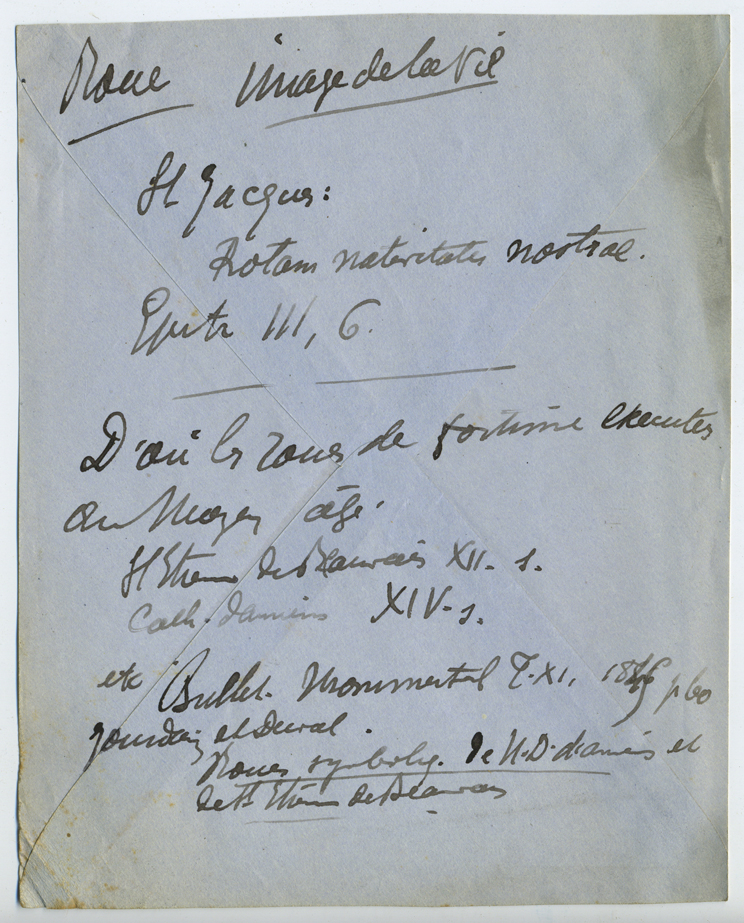 Roue image de la vie
St Jacques:
Rotam nativitatis nostrae.
Epitr III, 6.
D'où les roues de fortune executes
au Moyen âge.
St Etienne de Beauvais XII. s.
Cath. d'amiens XIV. s.
etc Bullet. Monumental T. XI, p 60
Jourdain et Duval.
Roues symboliq. de N.D. d'amiens et
de St Etienne de Beauvais